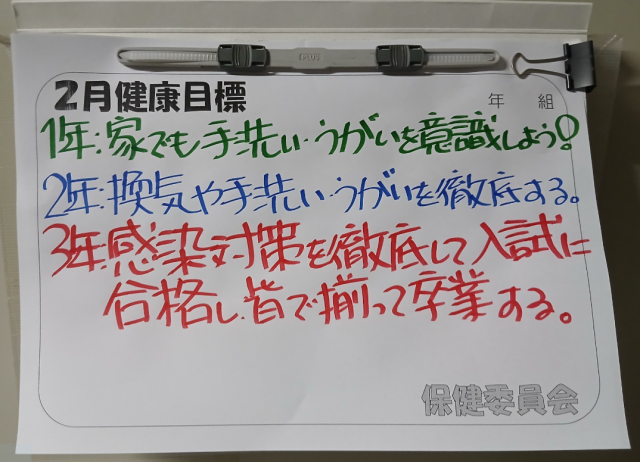 PLUS
2月健康目標
年 組
1年:家でも手洗い・うがいを意識しよう!
2年:換気や手洗い・うがいを徹底する。
3年:感染対策を徹底して入試に
合格し、皆で揃って卒業する。
保健委員会